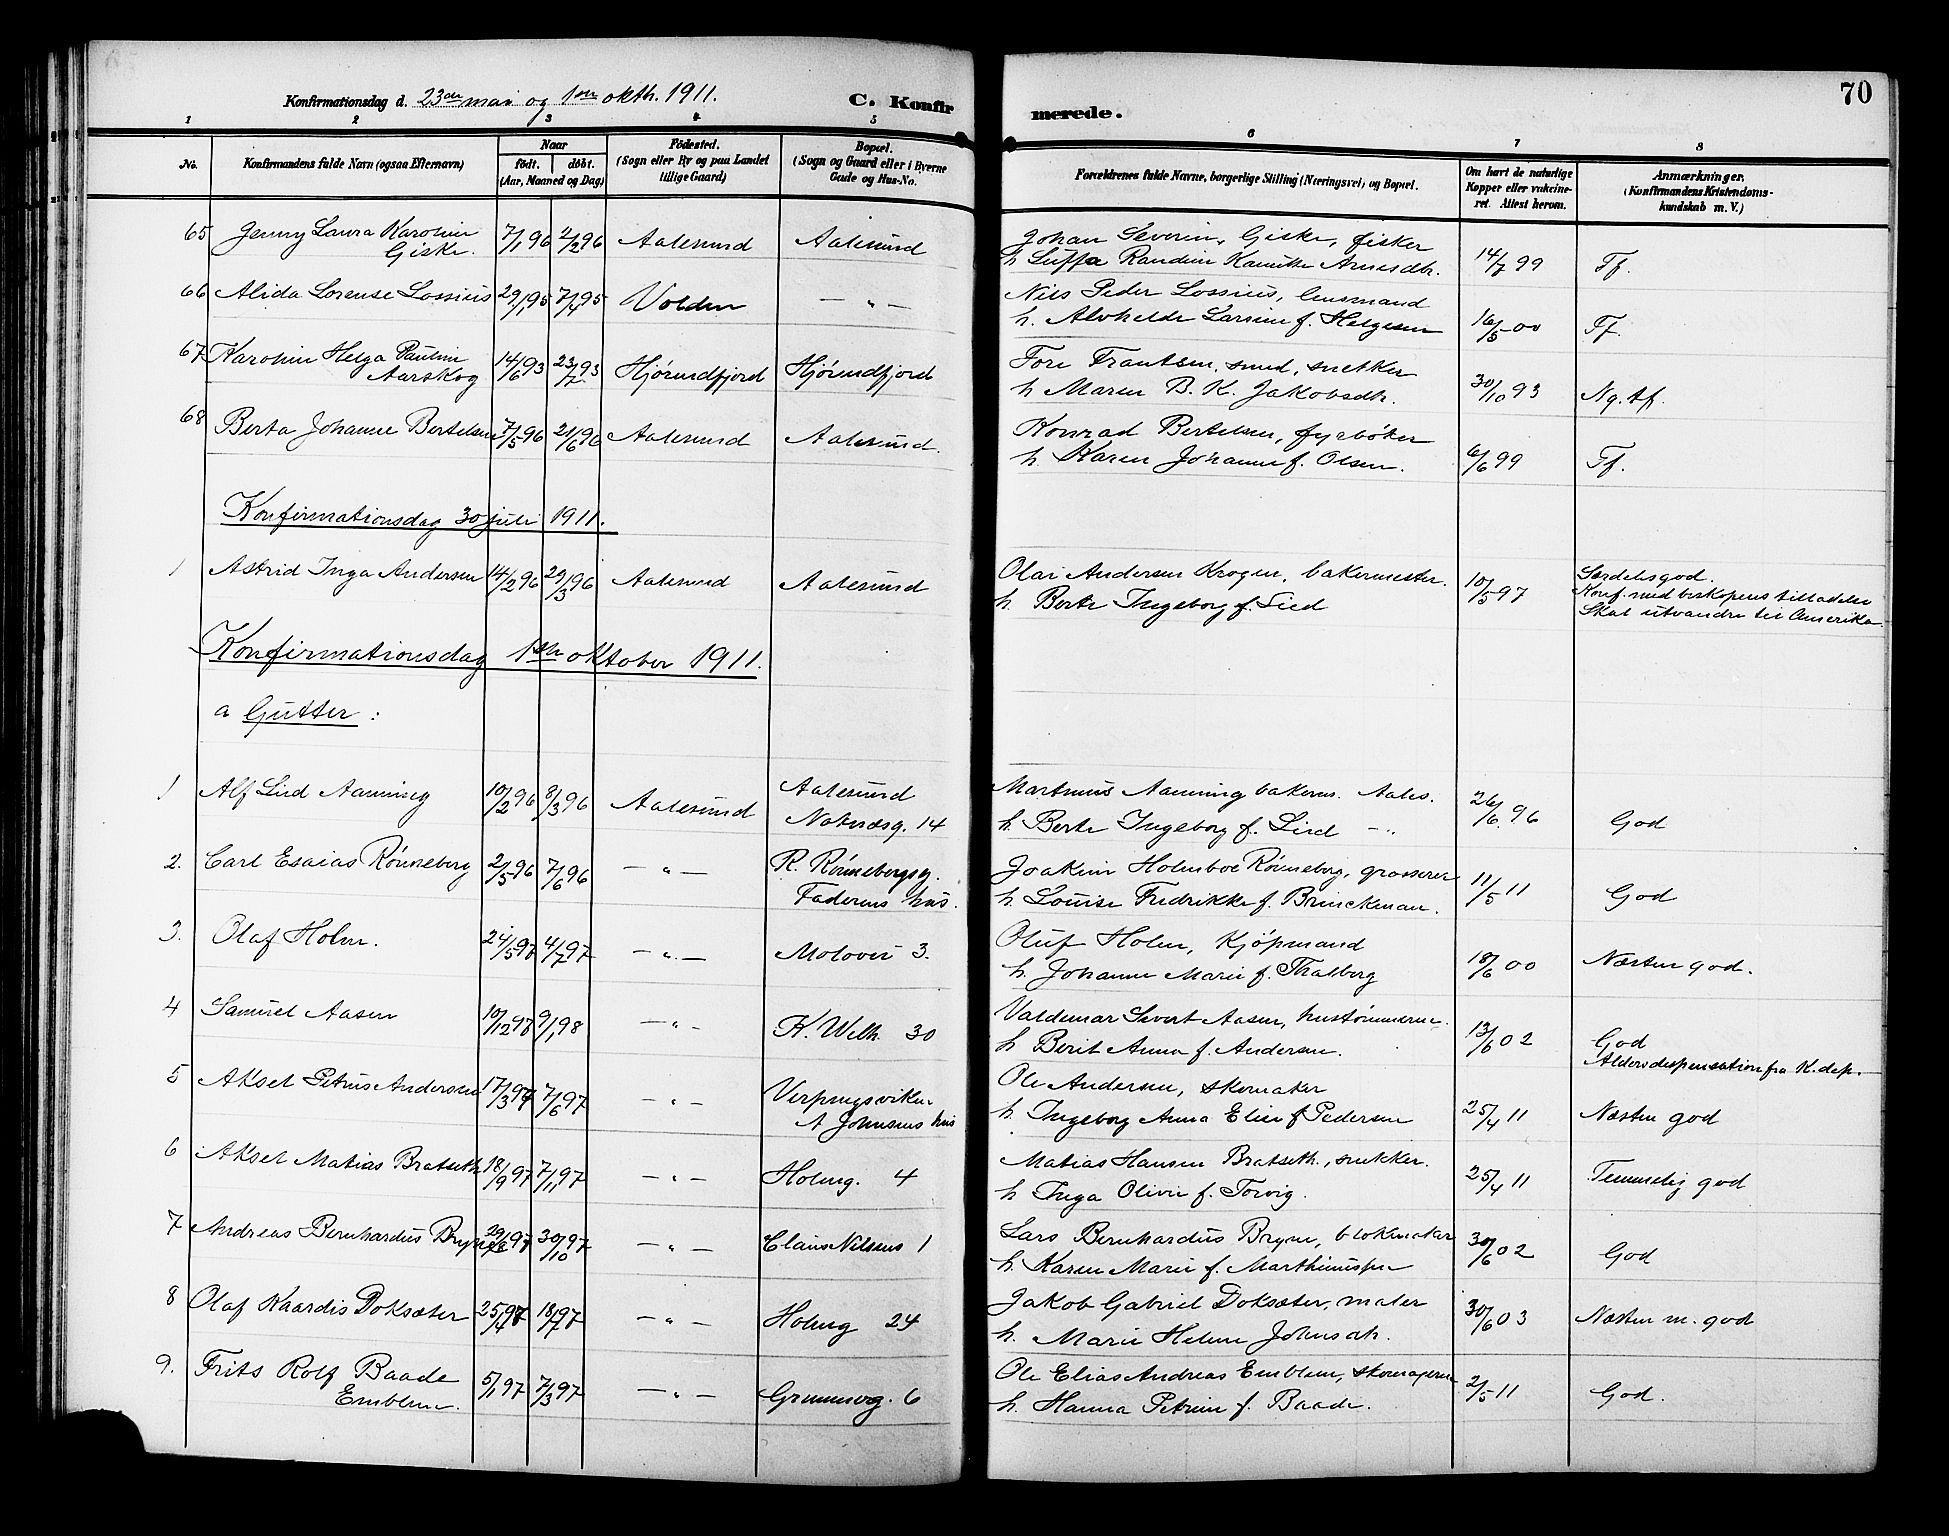 70
Konfirmationsdag d. 23de mai og 1ste oktb. 1911.
C. Konfirmerede.
1 2 3 4 5 6 7 8
No.
Konfirmandens fulde Navn (ogsaa Efternavn)
Naar
födt. döbt.
(Aar, Maaned og Dag)
Födested.
(Sogn eller By og paa Landet
tillige Gaard)
Bopæl.
(Sogn og Gaard eller i Byerne
Gade og Hus-No.
Forældrenes fulde Navne, borgerlige Stilling (Næringsvei) og Bopæl.
Om havt de naturlige
Kopper eller vakcine-
ret. Attest herom.
Anmærkninger.
(Konfirmandens Kristendoms-
kundskab m. V.)
65 Jenny Laura Karoline 7/1 96 2/2 96 Aalesund Aalesund Johan Severin Giske, fisker
Giske. h. Randine Arnesdtr. 14/7 99 Tf.
66 Alida Lorense Lossius 29/1 95 7/4 95 Volden — " — Nils Peder Lossius, lensmand
h. Alvhelde Larsine f. Helgesen 16/5 00 Tf.
67 Karoline Helga Pauline 14/6 93 23/7 93 Hjørundfjord Hjørundfjord Tore Frantsen, smed, snekker
Aarskog h. Maren B. K. Jakobsdtr. 30/10 93 Ng. tf.
68 Berta Johanne Bertelsen 7/5 96 21/6 96 Aalesund Aalesund. Konrad Bertelsen, fyrbøter
h. Karen Johanne f. Olsen. 6/6 99 Tf.
Konfirmationsdag 30 juli 1911.
1 Astrid Inga Andersen 14/2 96 29/3 96 Aalesund Aalesund Olai Andersen Krogen, bakermester. 10/5 97 Særdeles god.
h. Berte Ingeborg f. Lied Konf. med biskopens tilladelse
Skal utvandre til Amerika.
Konfirmationsdag 1ste oktober 1911.
a Gutter:
1 Alf Lied Aanning 10/2 96 8/3 96 Aalesund Aalesund Martinus Aanning bakerm. Aales.
Notenesg. 14 h. Berte Ingeborg f. Lied — " 26/6 96 God
2. Carl Esaias Rønneberg 2/5 96 7/6 96 — " — R. Rønnebergsg. Joakim Holmboe Rønneberg, grosserer
Faderens hus. h. Louise Fredrikke f. Brinckman. 11/5 11 God
3. Olaf Holm. 24/5 97 4/7 97 — " — Molovei 3. Oluf Holm, Kjøpmand
h. Johanne Marie f. Thalberg 18/6 00 Næsten god.
4 Samuel Aasen 10/12 97 9/1 98 — " — K. Welh. 30 Valdemar Sivert Aasen, hustømmerm.
h. Berit Anna f. Andersen. 13/6 02 God
Aldersdispensation fra K. dep.
5 Aksel Petrus Andersen 17/3 97 7/6 97 — " — Verpingsviken Ole Andersen, skomaker
A Johnsens hus h. Ingeborg Anna Elise f. Pedersen 25/4 11 Næsten god
6 Aksel Matias Bratseth 18/9 97 7/11 97 — " — Holmg. 4 Matias Hansen Bratseth, snekker.
h. Inga Olivie f. Torvig. 25/4 11 Temmelig god
7 Andreas Bernhardus Bryne 29/8 97 30/10 97 — " — Claus Nilsens 1 Lars Bernhardus Bryne, blokmaker
h. Karen Marie f. 30/6 02 God
8 Olaf Kaardis Doksæter 25/4 97 18/7 97 — " — Holmg 24 Jakob Gabriel Doksæter, maler
h. Marie Helene Johnsdtr. 30/6 03 Næsten m. god
9. Frits Rolf Baade 5/1 97 7/3 97 — " — Grimmerg. 6 Ole Elias Andreas Emblem, skomagerm.
Emblem. h. Hanna Petrine f. Baade. 2/5 11 God.